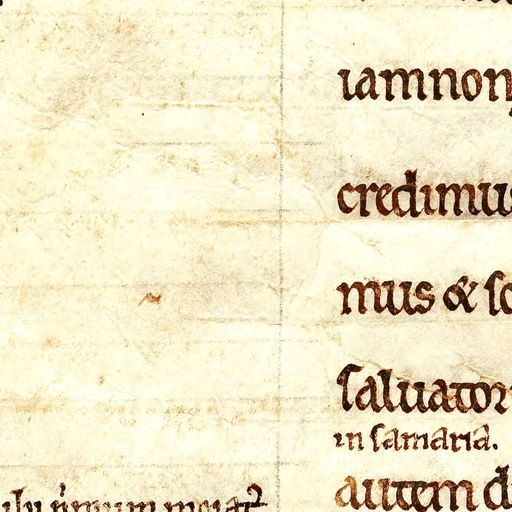 iam non
credimus
mus & sc
saluator
in samaria.
autem d